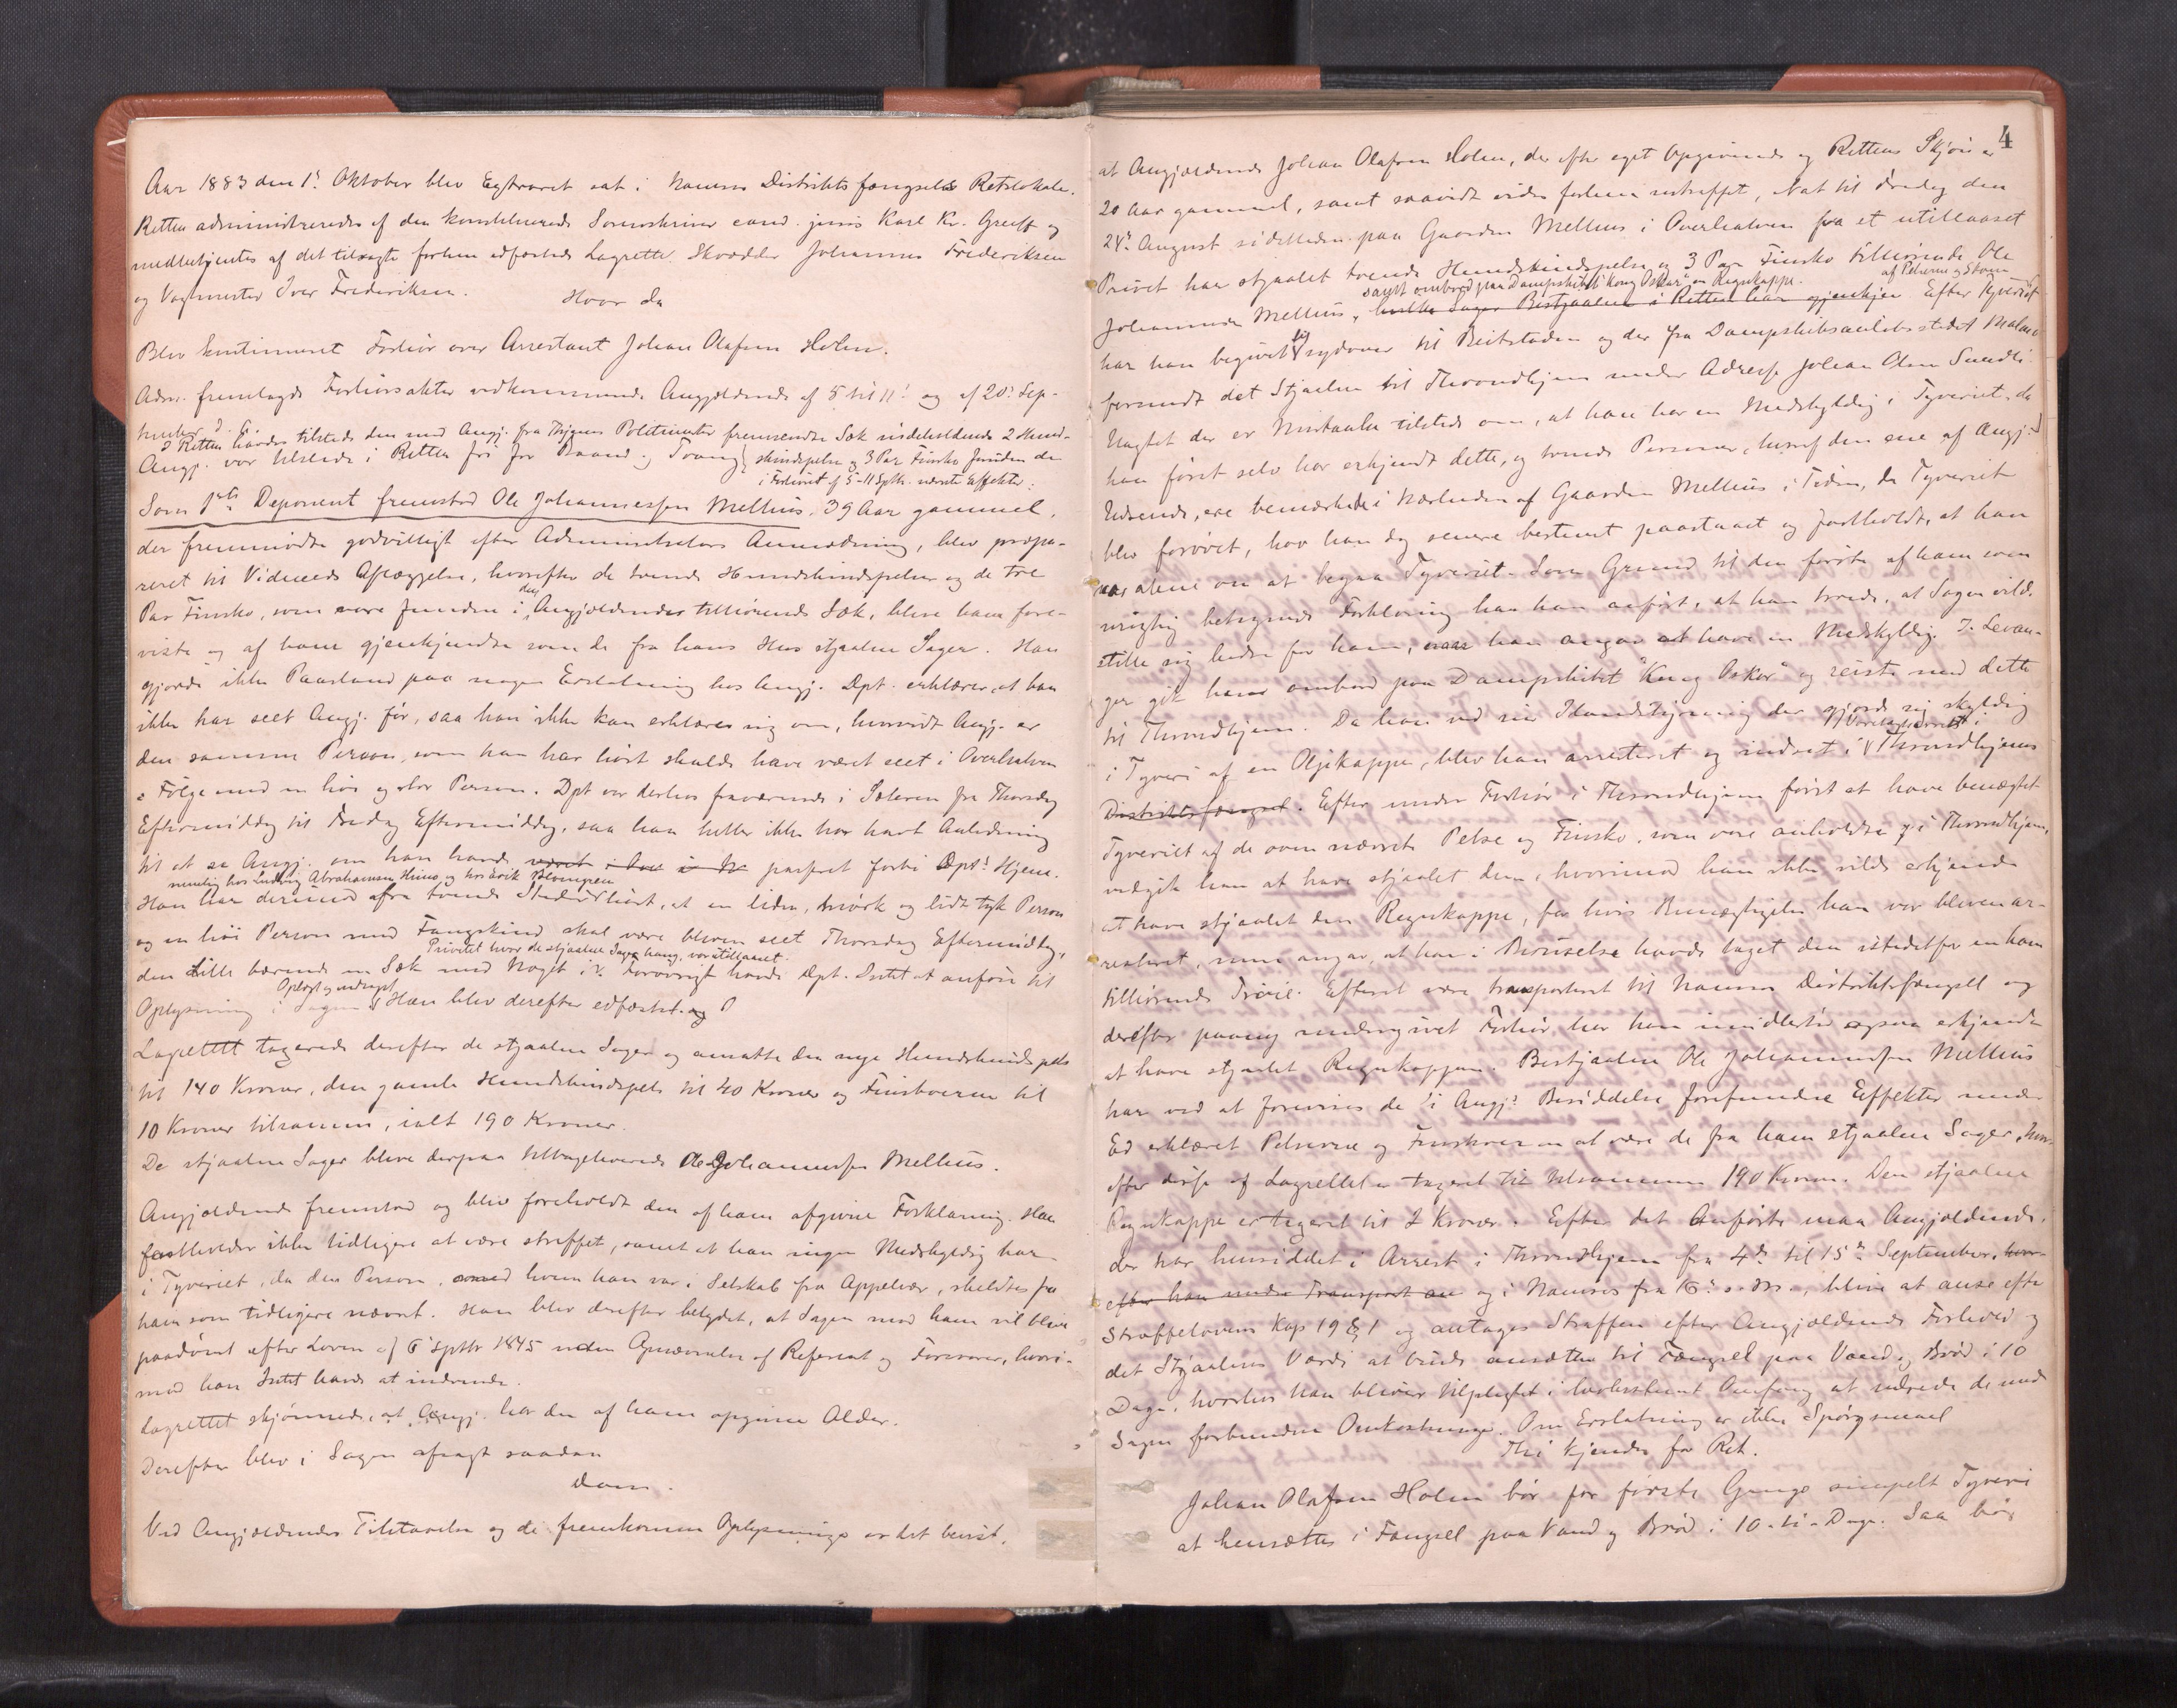 Aar 1883 den 1ste Oktober blev Extraret sat i Namsos Distriktsfængsels Retslokale.
Retten administreredes af den konstituerede Sorenskriver cand. juris Karl Kr. Greiff og
medbetjentes af det tilsagte forhen edfæstede Lagrette Skrædder Johannes Frederiksen
og Vagtmester Iver Frederiksen.
Hvor da
Blev kontinueret Forhør over Arrestant Johan Olafsen Holm.
Adm. fremlagde Forhørsakter vedkommende Angjældende af 5 til 11te og af 20de Sep-
tember d. A.
I Retten havdes tilstede den med Angj. fra Thjems Politimester fremsendte Sæk indeholdende 2 Hund-
Angj. var tilstede i Retten fri for Baand og Tvang skindspelse og 3 Par Finsko foruden de
i Forhøret af 5-11 Septbr. nævnte Effekter.
Som 1ste Deponent fremstod Ole Johannessen Mellius. 39 Aar gammel,
der fremmødte godvilligt efter Administrators Anmodning, blev præpa-
reret til Vidneeds Aflæggelse, hvorefter de tvende Hundskindspelse og de tre
Par Finsko, som vare fundne i den Angjældendes tilhørende Sæk, bleve ham fore-
viste og af ham gjenkjendte som de fra hans Hus stjaalne Sager. Han
gjorde ikke Paastand paa nogen Erstatning hos Angj. Dpt. erklærer, at han
ikke har seet Angj. før, saa han ikke kan erklære sig om, hvorvidt Angj. er
den samme Person, som han har hørt skulde have været seet i Overhalven
i Følge med en høi og stor Person. Dpt var derhos fraværende i Sæteren fra Thorsdag
Eftermiddag til Fredag Eftermiddag, saa han heller ikke har havt Anledning
til at se Angj. om han havde været i Ove i N passeret forbi Dpts Hjem.
nemlig hos Ludvig Abrahamsen Himo og hos Erik Blomgren
Han har derimod afra tvende Steder hørt, at en liden, mørk og lidt tyk Person
og en høi Person med Fangskind skal være bleven seet Thorsdag Eftermiddag,
Privetet hvor de stjaalne Sager hang, var utillaaset.
den Lille bærende en Sæk med Noget i. Forøvrigt havde Dpt. Intet at anføre til
Oplæst og vedtaget
Oplysning i Sagen. Han blev derefter edfæstet og
Lagrettet taxerede derefter de stjaalne Sager og ansatte den nye Hundskindspels
til 140 Kroner, den gamle Hundskindspels til 40 Kroner og Finskoerne til
10 Kroner tilsammen, ialt 190 Kroner.
De stjaalne Sager bleve derpaa tilbageleverede Ole Johannessen Mellius.
Angjældende fremstod og blev foreholdt den af ham afgivne Forklaring. Han
fastholder ikke tidligere at være straffet, samt at han ingen Medskyldig har
i Tyveriet, da den Person, med hvem han var i Selskab fra Appelvær, skiltes fra
ham som tidligere nævnt. Han blev derefter betydet, at Sagen mod ham vil blive
paadømt efter Loven af 6te Septbr 1845 uden Opnævnelse af Referent og Forsvarer, hvori-
mod han Intet havde at indvende.
Lagrettet skjønnede, at Angj. har den af ham opgivne Alder.
Derefter blev i Sagen afsagt saadan
Dom.
Ved Angjældendes Tilstaaelse og de fremkomne Oplysninger er det bevist,
4
at Angjældende Johan Olafsen Holm, der efter eget Opgivende og Rettens Skjøn er
20 Aar gammel, samt saavidt vides forhen ustraffet, Nat til Fredag den
24de August sidstleden paa Gaarden Mellius i Overhalven fra et utillaaset
Privet har stjaalet tvende Hundskindspelse og 3 Par Finsko tilhørende Ole
samt ombord paa Dampskibet "Kong Oskar" en Regnkappe. af Pelsene og Skoene
Johannessen Mellius, hvilke Sager Bestjaalne i Retten har gjenkjen Efter Tyveriet
har han begivet sig sydover til Beitstaden og der fra Dampskibsanløbsstedet Malm
forsendt det Stjaalne til Throndhjem under Adresse Johan Olsen Sundli.
Uagtet der er Mistanke tilstede om, at han har en Medskyldig i Tyveriet, da
han først selv har erkjendt dette, og tvende Personer, hvoraf den ene af Angj.s
Udseende, ere bemærkede i Nærheden af Gaarden Mellius i Tiden, da Tyveriet
blev forøvet, har han dog senere bestemt paastaaet og fastholdt, at han
var alene om at begaa Tyveriet. Som Grund til den første af ham som
urigtig betegnede Forklaring har han anført, at han troede, at Sagen vilde
stille sig bedre for ham, naar han angav at have en Medskyldig. I Levan-
ger gik han ombord paa Dampskibet "Kong Oskar" og reiste med dette
til Throndhjem. Da han ved sin Ilandstigning der gjorde sig skyldig
Varetægtsarrest i
i Tyveri af en Oljekappe, blev han arresteret og indsat i Throndhjems
Distriktsfængsel. Efter under Forhør i Throndhjem først at have benægtet
Tyveriet af de ovennævnte Pelse og Finsko, som vare anholdte i Throndhjem,
vedgik han at have stjaalet dem, hvorimod han ikke vilde erkjende
at have stjaalet den Regnkappe, for hvis Benægtelse han var bleven ar-
resteret, men angav, at han i Beruselse havde taget den istedetfor en ham
tilhørende Trøie. Efterat være transporteret til Namsos Distriktsfængsel og
derefter paany undergivet Forhør har han imidlertid ogsaa erkjendt
at have stjaalet Regnkappen. Bestjaalne Ole Johannessen Mellius
har ved at forevises de i Angj.s Besiddelse forefundne Effekter under
Ed erklæret Pelsene og Finskoene at være de fra ham stjaalne Sager, hvor-
efter disse af Lagrettet er taxeret til tilsammen 190 Kroner. Den stjaalne
Regnkappe er taxeret til 2 Kroner. Efter det Anførte maa Angjældende,
der har hensiddet i Arrest i Throndhjem fra 4de til 15de September, hvor-
efter han under Transport og i Namsos fra 16de s. M., blive at anse efter
Straffelovens Kap 19 § 1 og antages Straffen efter Angjældendes Forhold og
det Stjaalnes Værdi at burde ansættes til Fængsel paa Vand og Brød i 10
Dage, hvorhos han bliver tilpligtet i lovbestemt Omfang at udrede de med
Sagen forbundne Omkostninger. Om Erstatning er ikke Spørgsmaal
Thi kjendes for Ret.
Johan Olafsen Holm bør for første Gangs simpelt Tyveri
at hensættes i Fængsel paa Vand og Brød i 10 - ti - Dage. Saa bør